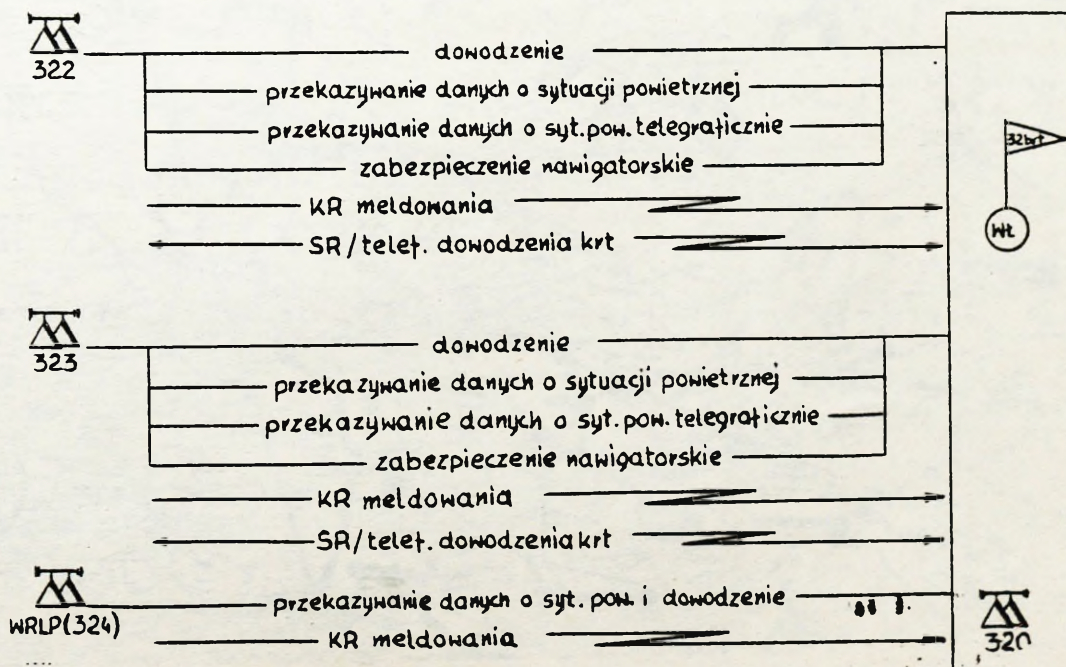 322
dowodzenie
przekazywanie danych o sytuacji powietrznej
przekazywanie danych o syt.pow.telegraficznie
zabezpieczenie nawigatorskie
KR meldowania
SR/telef. dowodzenia krt
32brt
Wt
323
dowodzenie
przekazywanie danych o sytuacji powietrznej
przekazywanie danych o syt.pow.telegraficznie
zabezpieczenie nawigatorskie
KR meldowania
SR/telef. dowodzenia krt
WRLP(324)
przekazywanie danych o syt.pow. i dowodzenie
KR meldowania
320